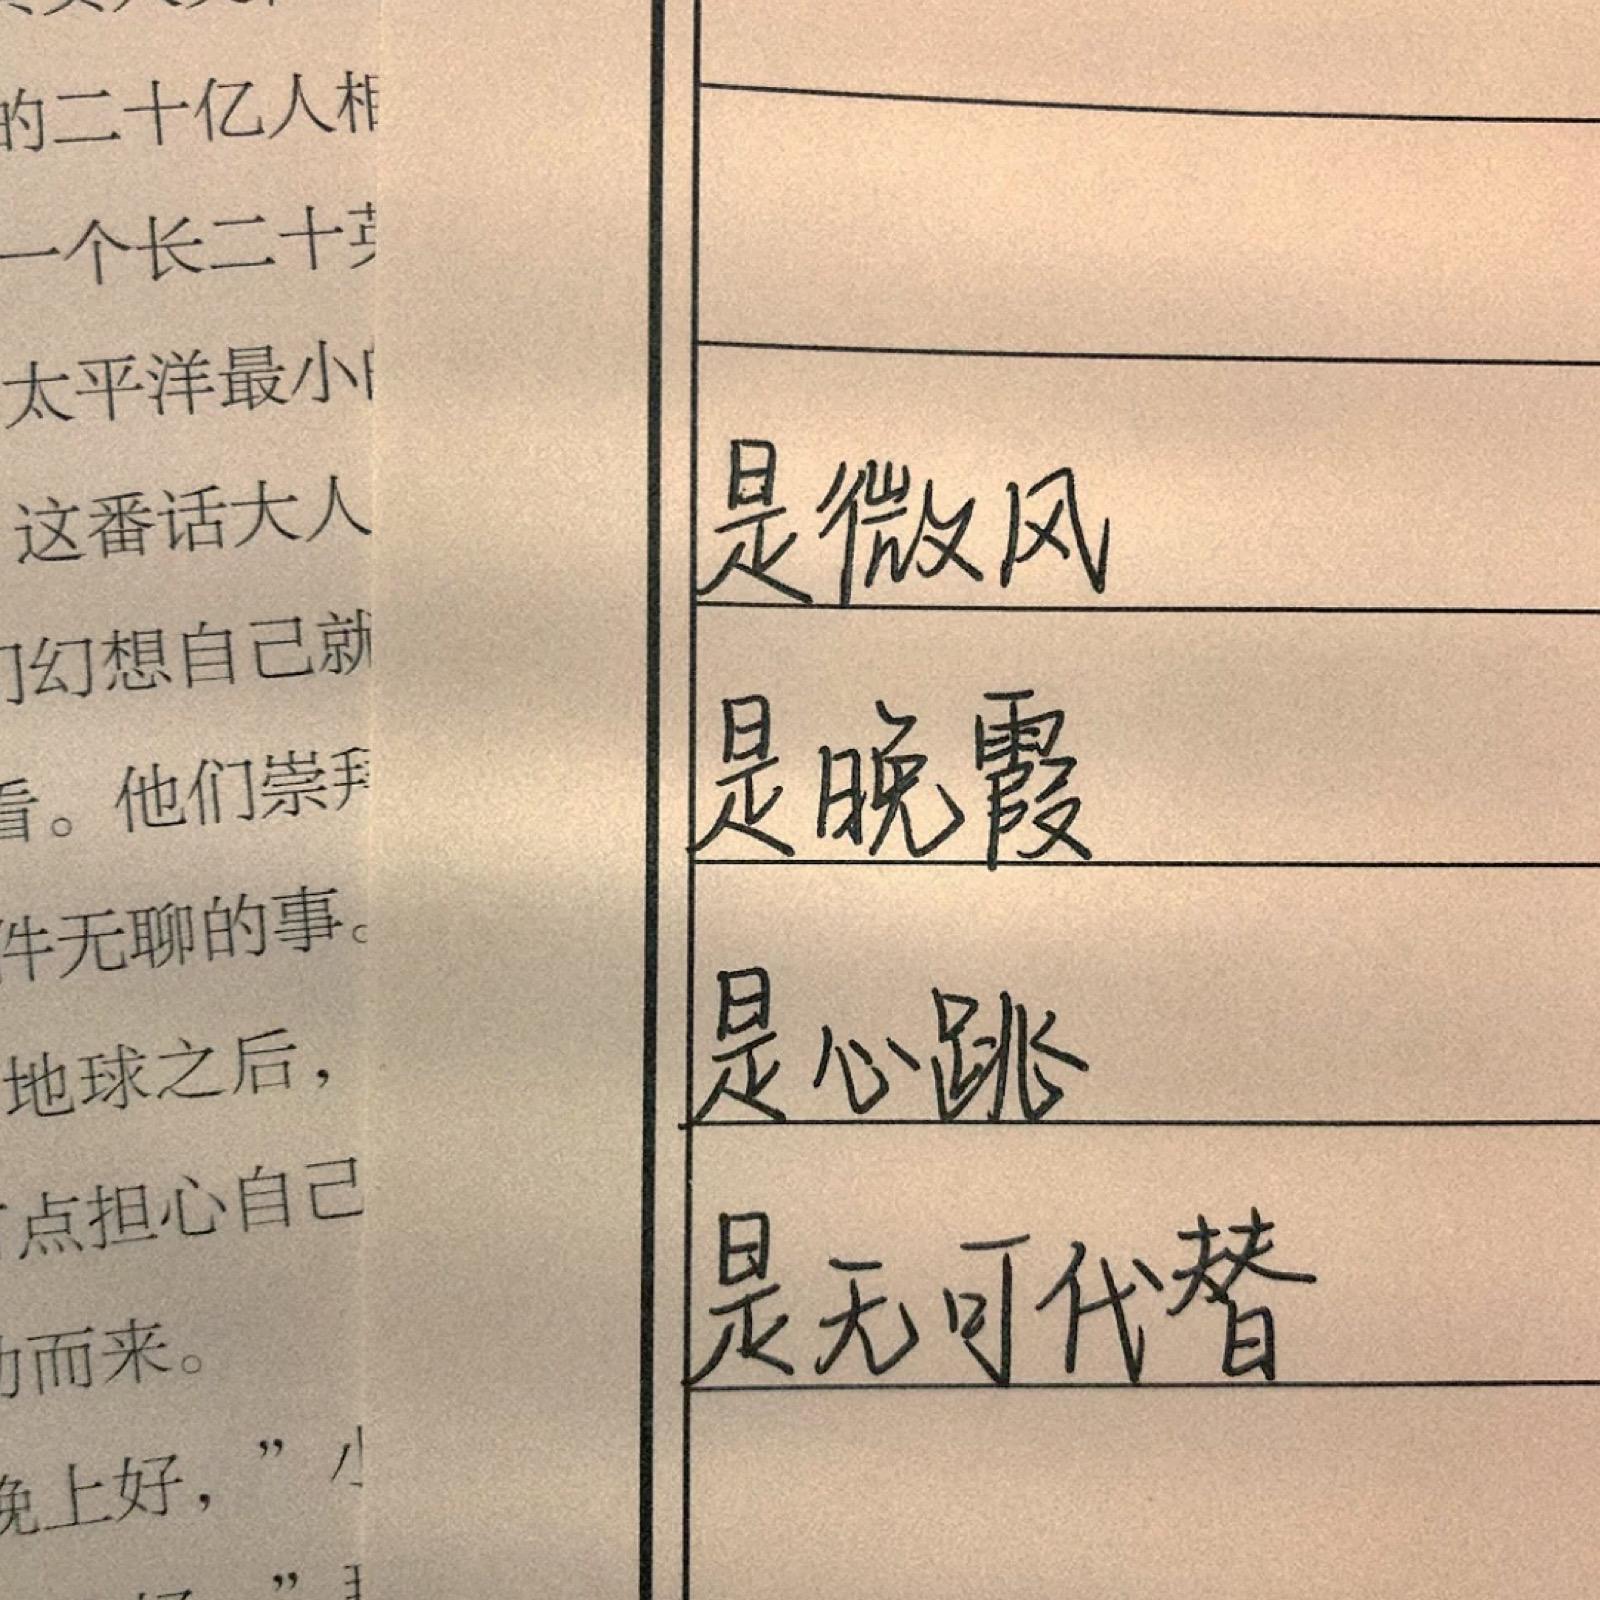 的二十亿人相
一个长二十英
太平洋最小的
这番话大人
们幻想自己就
看。他们崇拜
件无聊的事。
地球之后，
点担心自己
动而来。
晚上好，”小
是微风
是晚霞
是心跳
是无可代替